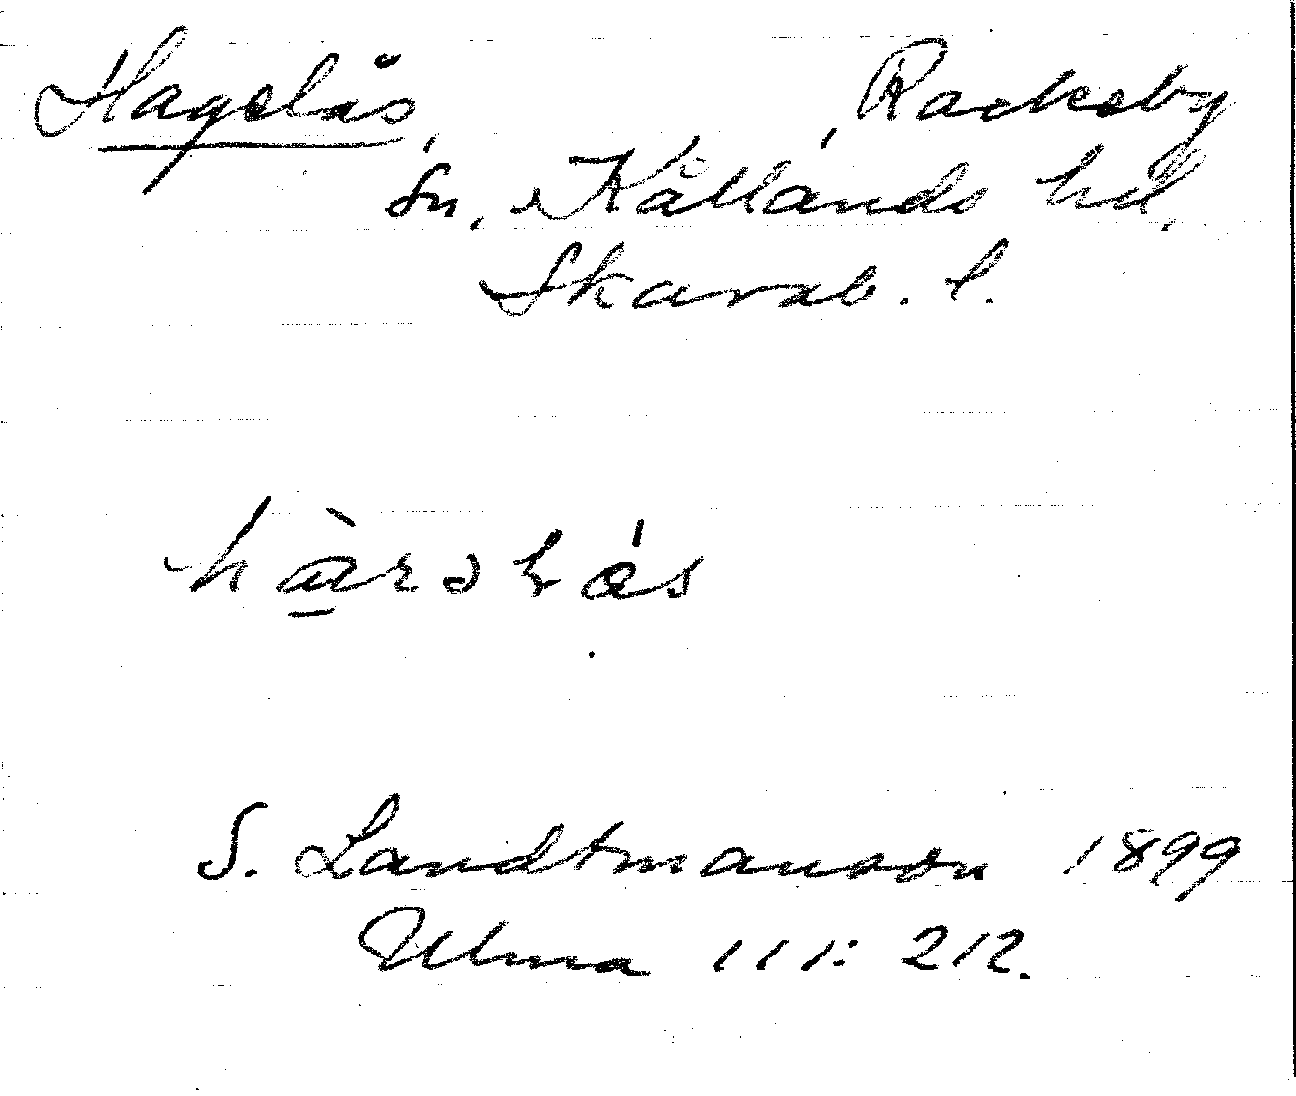 Hagelås, Rackeby
sn, Kållands hd,
Skarab. l.
S. Landtmanson 1899
Ulma 111: 212.